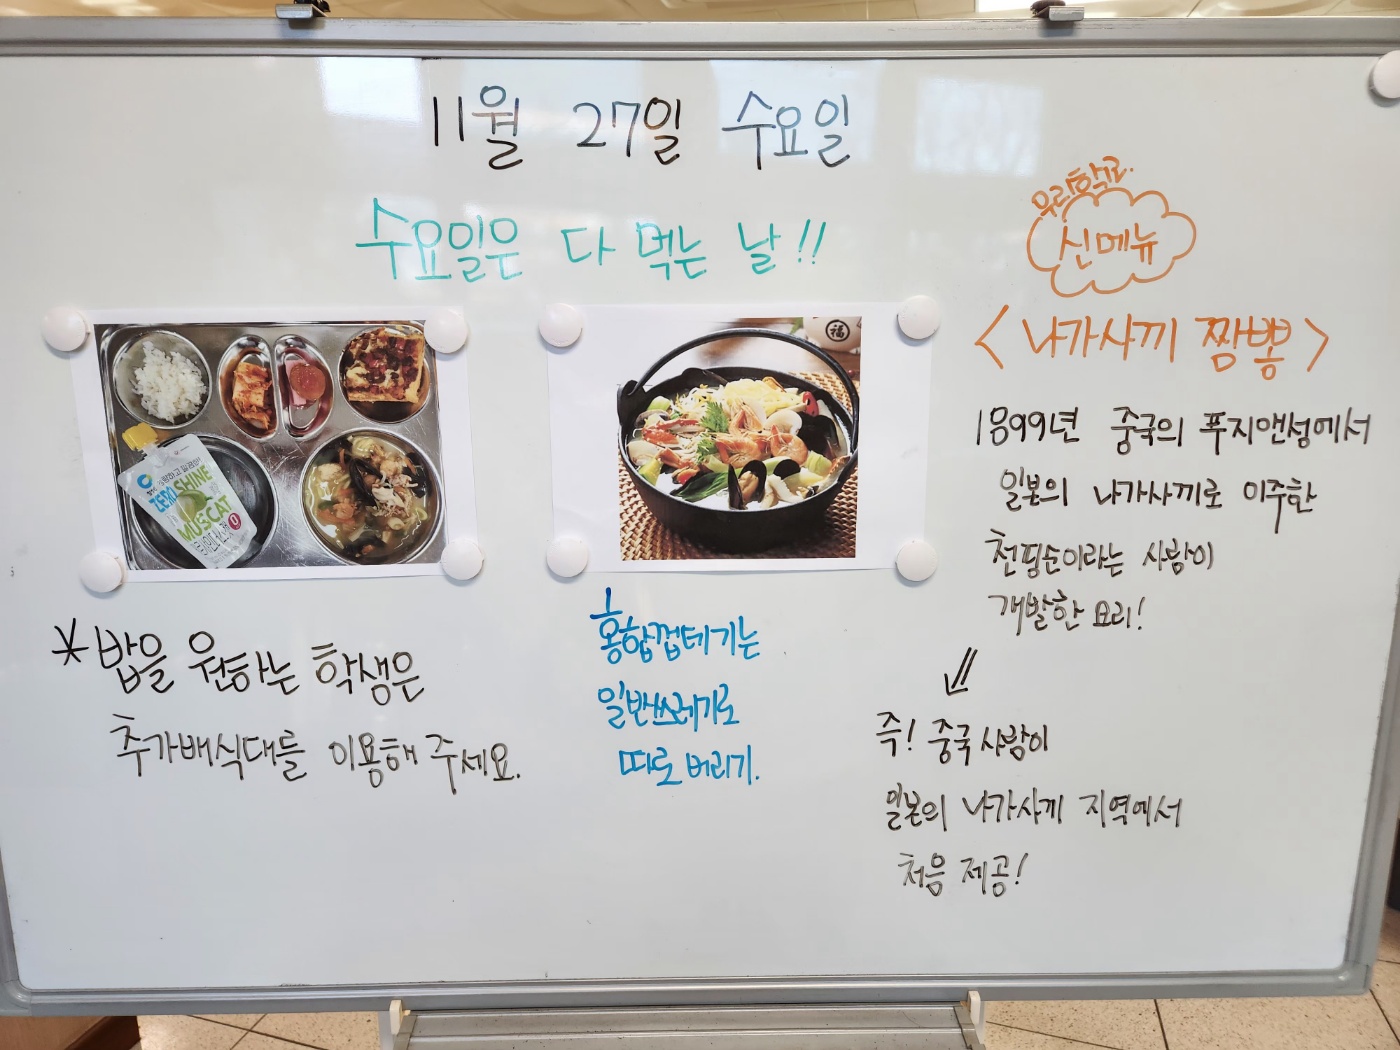 11월 27일 수요일
수요일은 다 먹는 날!!
우리학교
신메뉴
<나가사끼 짬뽕>
1899년 중국의 푸지앤성에서
일본의 나가사끼로 이주한
천핑순이라는 사람이
개발한 요리!
즉! 중국사람이
일본의 나가사끼 지역에서
처음 제공!
ZERO SHINE
MUSCAT
福
*밥을 원하는 학생은
추가배식대를 이용해 주세요.
홍합껍데기는
일반쓰레기로
따로 버리기.